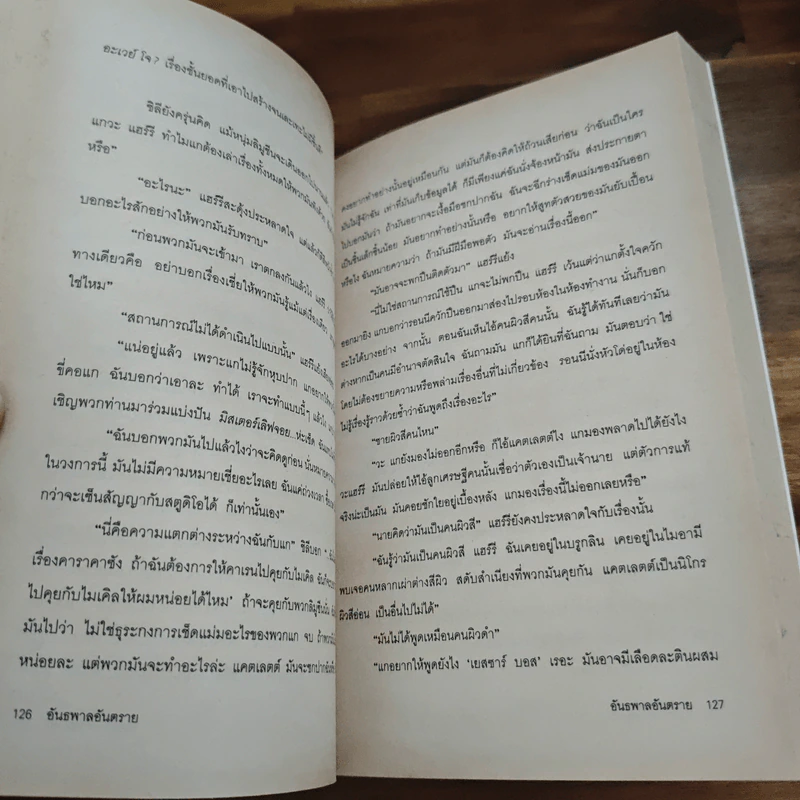 อะเวย์ โจ? เรื่องชั้นยอดที่เอาไปสร้างจน
ชิลียังครุ่นคิด แม้หนุ่มลิมูซีนจะเดินออกไป
แกวะ แฮร์รี ทำไมแกต้องเล่าเรื่องทั้งหมดให้พวกมันฟังด้วย
หรือ”
“อะไรนะ” แฮร์รีสะดุ้งประหลาดใจ แต่แล้วก็
บอกอะไรสักอย่างให้พวกมันรับทราบ”
“ก่อนพวกมันจะเข้ามา เราตกลงกันแล้วไง แฮร์รี
ทางเดียวคือ อย่าบอกเรื่องเชี่ยให้พวกมันรู้แม้แต่เรื่องเดียว
ใช่ไหม”
“สถานการณ์ไม่ได้ดำเนินไปแบบนั้น” แฮร์รี
“แน่อยู่แล้ว เพราะแกไม่รู้จักหุบปาก แกอยาก
ขี่คอแก ฉันบอกว่าเอาละ ทำได้ เราจะทำแบบนี้ๆ แล้วไง
เชิญพวกท่านมาร่วมแบ่งปัน มิสเตอร์เลิฟจอย...ห่าเช็ด
“ฉันบอกพวกมันไปแล้วไงว่าจะคิดดูก่อน นั่นหมายความ
ในวงการนี้ มันไม่มีความหมายเชี่ยอะไรเลย ฉันแค่ถ่วงเวลา
กว่าจะเซ็นสัญญากับสตูดิโอได้ ก็เท่านั้นเอง”
“นี่คือความแตกต่างระหว่างฉันกับแก” ชิลีบอก
เรื่องคาราคาซัง ถ้าฉันต้องการให้คาเรนไปคุยกับไมเคิล
ไปคุยกับไมเคิลให้ผมหน่อยได้ไหม’ ถ้าจะคุยกับพวกลิมูซีนนั่น
มันไปว่า ไม่ใช่ธุระกงการเช็ดแม่มอะไรของพวกแก จบ ถ้าพวก
หน่อยละ แต่พวกมันจะทำอะไรล่ะ แคตเลตต์ มันจะชกปาก
126 อันธพาลอันตราย
คงอยากทำอย่างนั้นอยู่เหมือนกัน แต่มันก็ต้องคิดให้ถ้วนเสียก่อน ว่าฉันเป็นใคร
มันไม่รู้จักฉัน เท่าที่มันเก็บข้อมูลได้ ก็มีเพียงแค่ฉันนั่งจ้องหน้ามัน ส่งประกายตา
ไปบอกมันว่า ถ้ามันอยากจะเงื้อมือชกปากฉัน ฉันจะฉีกร่างเช็ดแม่มของมันออก
เป็นชิ้นเล็กชิ้นน้อย มันอยากทำอย่างนั้นหรือ อยากให้สูทตัวสวยของมันยับเปื้อน
หรือไง ฉันหมายความว่า ถ้ามันมีฝีมือพอตัว มันจะอ่านเรื่องนี้ออก”
“มันอาจจะพกปืนติดตัวมา” แฮร์รีแย้ง
“นี่ไม่ใช่สถานการณ์ใช้ปืน แกจะไม่พกปืน แฮร์รี เว้นแต่ว่าแกตั้งใจควัก
ออกมายิง แกบอกว่ารอนนีควักปืนออกมาส่องไปรอบห้องในห้องทำงาน นั่นก็บอก
อะไรได้บางอย่าง จากนั้น ตอนฉันเห็นไอ้คนผิวสีคนนั้น ฉันรู้ได้ทันทีเลยว่ามัน
ต่างหากเป็นคนมีอำนาจตัดสินใจ ฉันถามมัน แกก็ได้ยินที่ฉันถาม มันตอบว่า ใช่
โดยไม่ต้องขยายความหรือพล่ามเรื่องอื่นที่ไม่เกี่ยวข้อง รอนนีนั่งหัวโด่อยู่ในห้อง
ไม่รู้เรื่องรู้ราวด้วยซ้ำว่าฉันพูดถึงเรื่องอะไร”
“ชายผิวสีคนไหน”
“วะ แกยังมองไม่ออกอีกหรือ ก็ไอ้แคตเลตต์ไง แกมองพลาดไปได้ยังไง
วะแฮร์รี มันปล่อยให้ไอ้ลูกเศรษฐีคนนั้นเชื่อว่าตัวเองเป็นเจ้านาย แต่ตัวการแท้
จริงน่ะเป็นมัน มันคอยชักใยอยู่เบื้องหลัง แกมองเรื่องนี้ไม่ออกเลยหรือ”
“นายคิดว่ามันเป็นคนผิวสี” แฮร์รียังคงประหลาดใจกับเรื่องนั้น
“ฉันรู้ว่ามันเป็นคนผิวสี แฮร์รี ฉันเคยอยู่ในบรูกลิน เคยอยู่ในไมอามี
พบเจอคนหลากเผ่าต่างสีผิว สดับสำเนียงที่พวกมันคุยกัน แคตเลตต์เป็นนิโกร
ผิวสีอ่อน เป็นอื่นไปไม่ได้”
“มันไม่ได้พูดเหมือนคนผิวดำ”
“แกอยากให้พูดยังไง ‘เยสซาร์ บอส’ เรอะ มันอาจมีเลือดละตินผสม
อันธพาลอันตราย 127